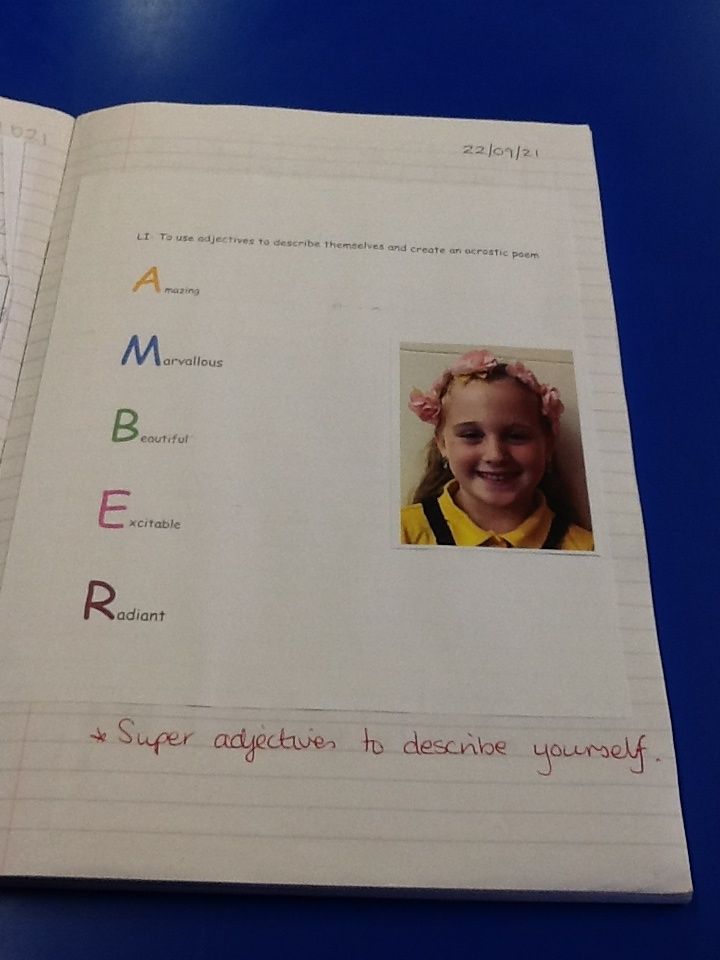 22/09/21
LI To use adjectives to describe themselves and create an acrostic poem
Amazing
Marvallous
Beautiful
Excitable
Radiant
* Super adjectives to describe yourself.